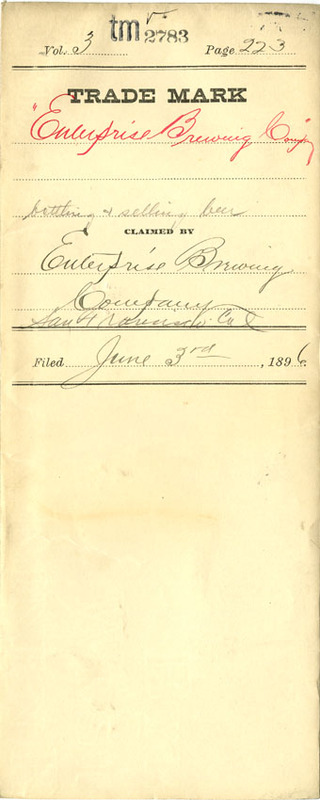 tm 2783
Vol. 3 Page 223
TRADE MARK
"Enterprise Brewing Compy"
bottling & selling beer
CLAIMED BY
Enterprise Brewing
Company
San Francisco Cal
Filed June 3rd, 1896